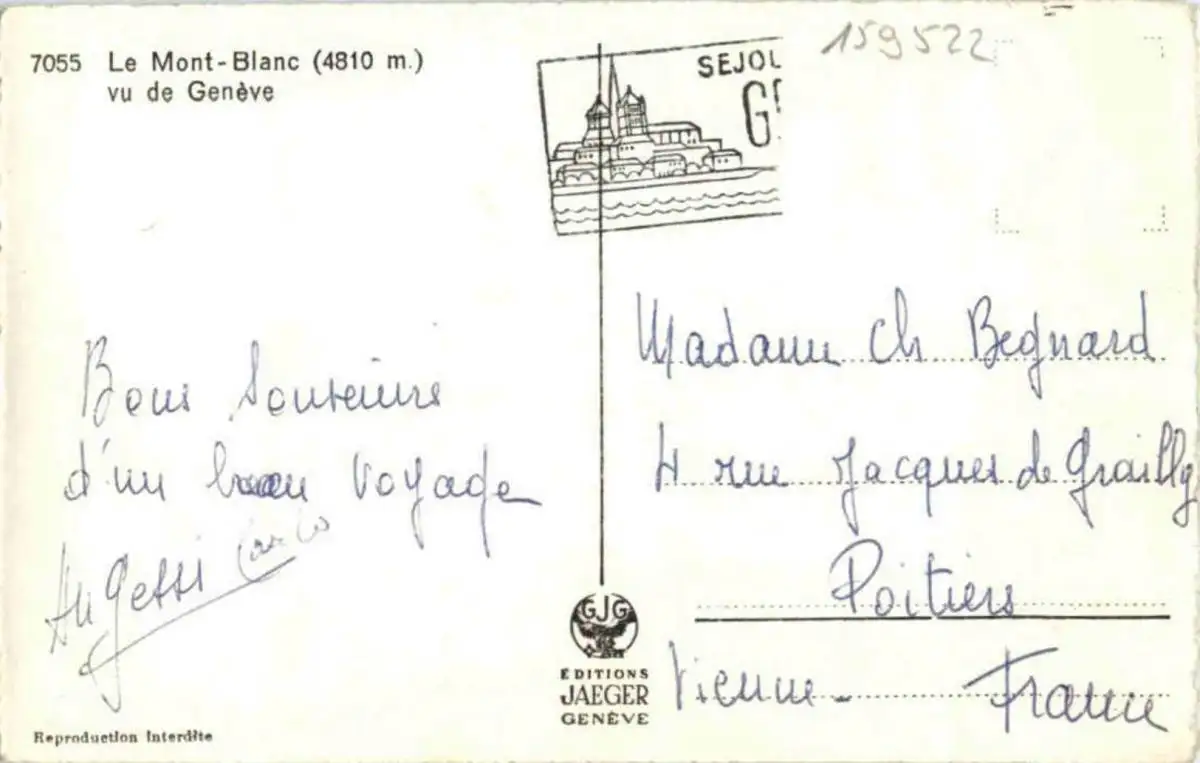 7055 Le Mont-Blanc (4810 m.)
vu de Genève
SEJOU
GE
159522
Bons Souvenirs
d'un bon voyage
Madame Ch Begnard
4 rue Jacques de Grailly
Poitiers
Vienne - France
GJG
ÉDITIONS
JAEGER
GENÈVE
Reproduction interdite